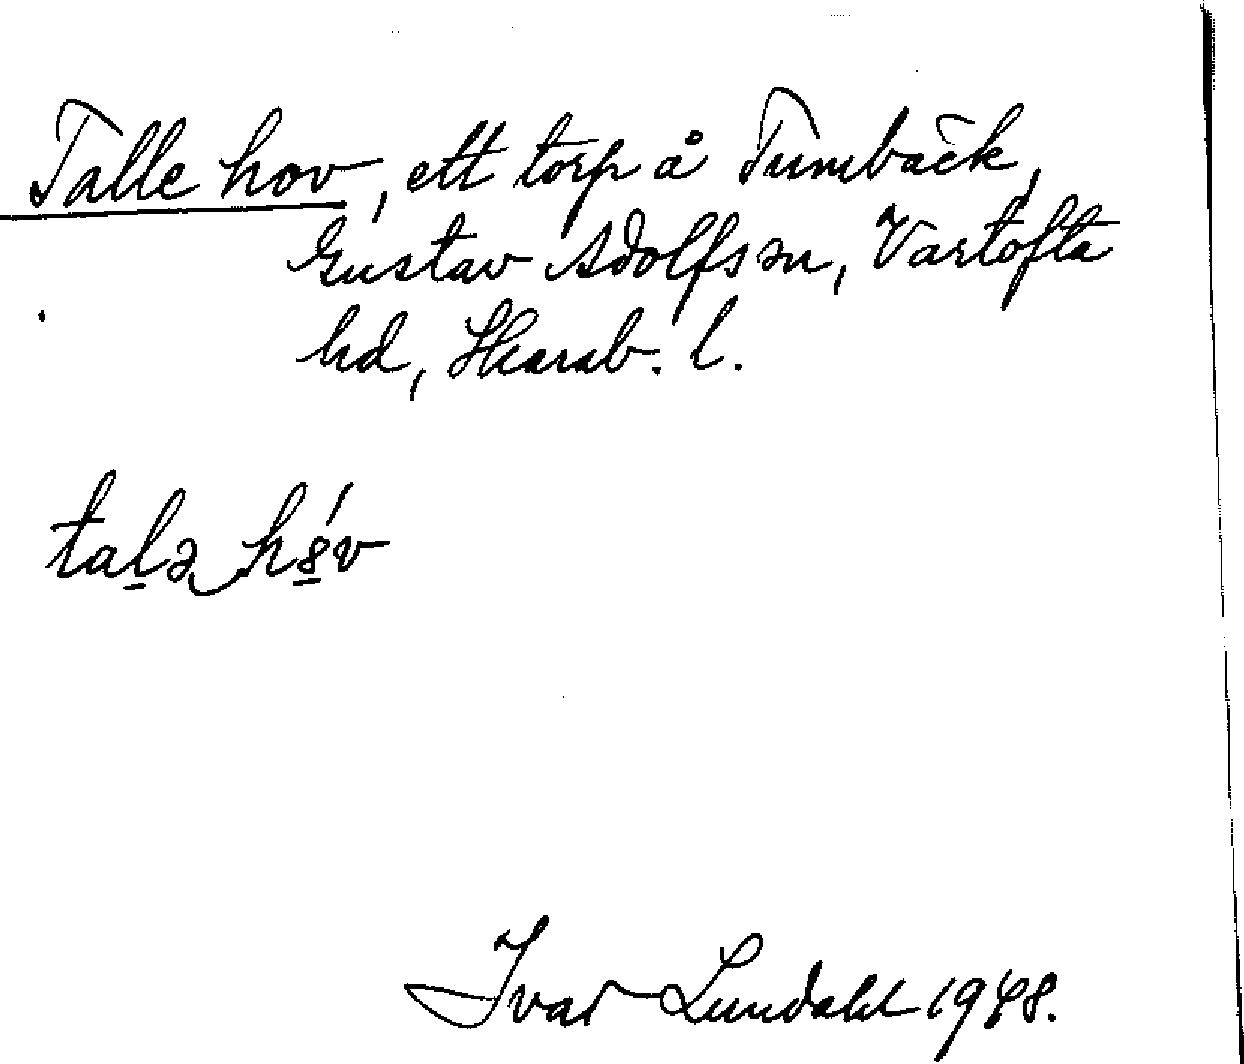 Talle hov, ett torp å Tumbäck,
Gustav Adolfs sn, Vartofta
hd, Skarab. l.
talə hȣ́v
Ivar Lundahl 1948.